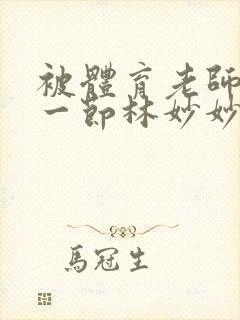 被體育老師
一節林妙妙
馬冠生